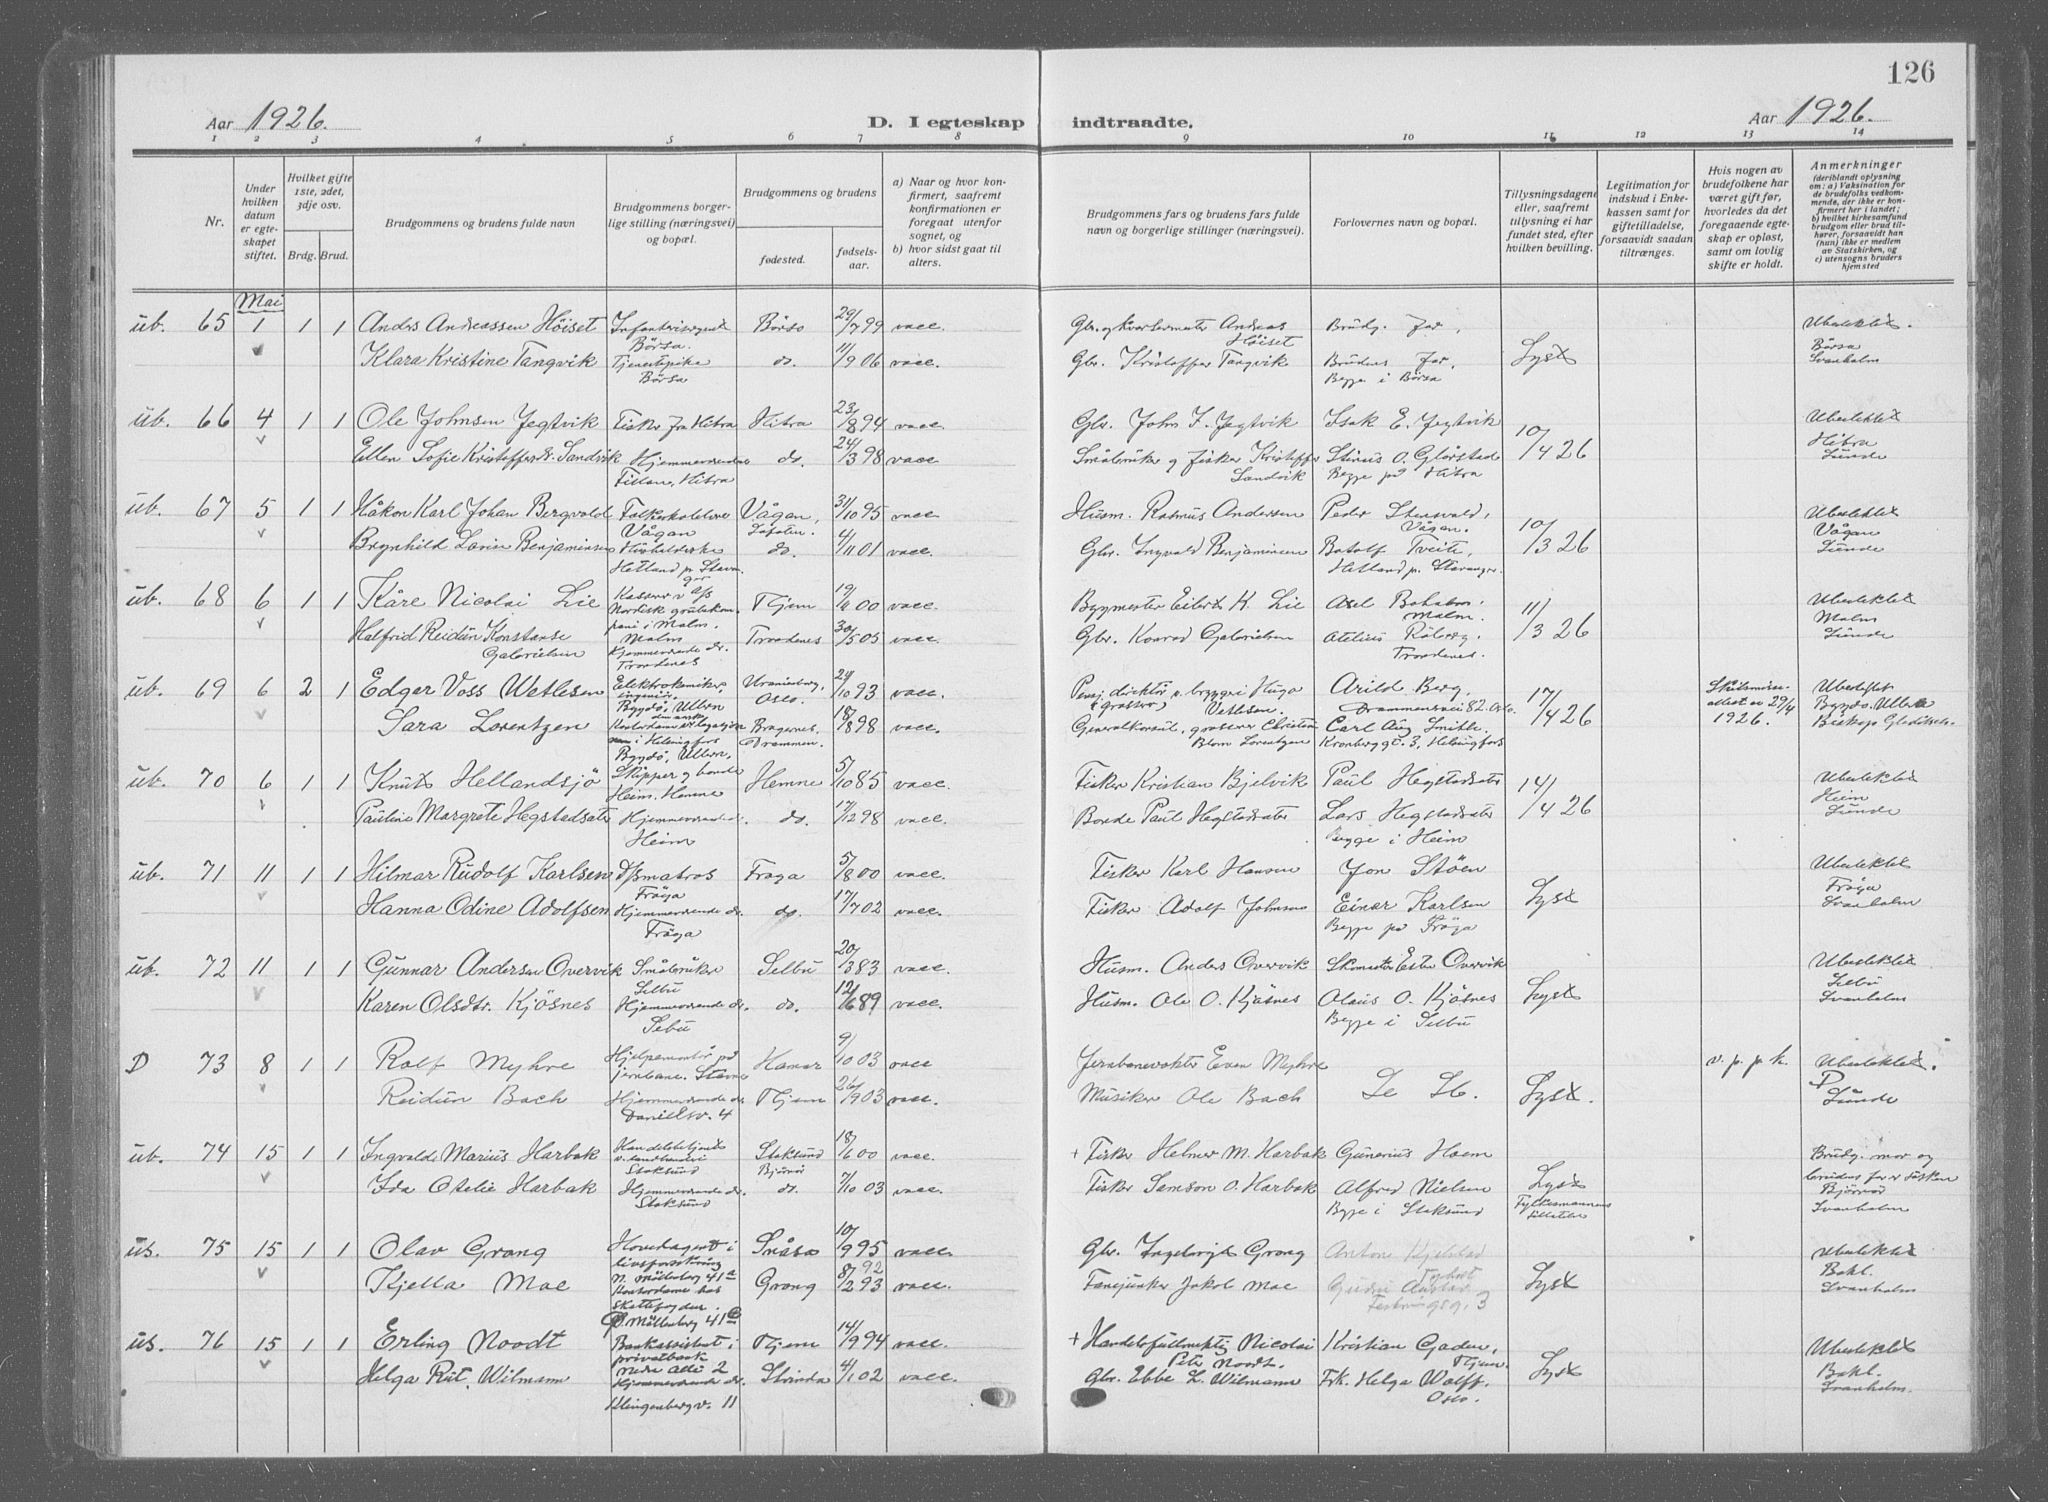 126
Aar 1926.
D. I egteskap indtraadte.
Aar 1926.
1 2 3 4 5 6 7 8 9 10 11 12 13 14
Nr.
Under hvilken datum er egteskapet stiftet.
Hvilket gifte 1ste, 2det, 3dje osv.
Brdg. Brud.
Brudgommens og brudens fulde navn
Brudgommens borgerlige stilling (næringsvei) og bopæl.
Brudgommens og brudens
fødested.
fødselsaar.
a) Naar og hvor konfirmert, saafremt konfirmationen er foregaat utenfor sognet, og
b) hvor sidst gaat til alters.
Brudgommens fars og brudens fars fulde navn og borgerlige stillinger (næringsvei).
Forlovernes navn og bopæl.
Tillysningsdagene eller, saafremt tillysning ei har fundet sted, efter hvilken bevilling.
Legitimation for indskud i Enkekassen samt for giftetilladelse, forsaavidt saadan tiltrænges.
Hvis nogen av brudefolkene har været gift før, hvorledes da det foregaaende egteskap er opløst, samt om lovlig skifte er holdt.
Anmerkninger
(deriblandt oplysning om: a) Vaksination for de brudefolks vedkommende, der ikke er konfirmert her i landet; b) hvilket kirkesamfund brudgom eller brud tilhører, forsaavidt han (hun) ikke er medlem av Statskirken, og c) utensogns bruders hjemsted
Mai
ub. 65 1 1 1 Anders Andreassen Höiset Infanterisergeant Börsa. Börsa 29/7 99 vacc. Gbr. og kvartermester Andreas Höiset Brudg. far, Ubeslektet.
Klara Kristine Tangvik Tjenestepike Börsa do. 11/9 06 vacc. Gbr. Kristoffer Tangvik Brudens far, Begge i Börsa Lyst Börsa Svanholm
ub. 66 4 1 1 Ole Johnsen Jegtvik Fisker fra Hitra Hitra 23/8 94 vacc. Gbr. John J. Jegtvik Isak E. Jegtvik 10/4 26 Ubeslektet
Ellen Sofie Kristoffersdtr. Sandvik Hjemmeværende Fillan, Hitra do. 24/3 98 vacc. Småbruker og fisker Kristoffer Sandvik Stinus O. Glörstad Begge på Hitra Hitra Lunde
ub. 67 5 1 1 Håkon Karl Johan Bergvold Folkeskolelærer Vågan Vågan, Lofoten. 31/10 95 vacc. Husm. Rasmus Andersen Peder Stenvold, Vågan. 10/3 26 Ubeslektet
Brynhild Lovise Benjaminsen Husholderske Hetland pr. Stavanger do. 4/11 01 vacc. Gbr. Ingvald Benjaminsen Botolf Tveite, Hetland pr. Stavanger. Vågan Lunde
ub. 68 6 1 1 Kåre Nicolai Lie Kasserer v a/s Nordisk grubekompani i Malm. Malm Thjem 00 vacc. Bygmester Eilert K. Lie Axel Malm. 11/3 26 Ubeslektet
Halfrid Reidun Konstanse Gabrielsen Hjemmeværende do. Trondenes Trondenes 30/5 05 vacc. Gbr. Konrad Gabrielsen Trondenes. Malm Lunde
ub. 69 6 2 1 Edgar Voss Wetlesen Elektrokemiker, ingeniör, Bygdö, Ullern Uranienborg, Oslo. 24/10 93 vacc. Arild Berg, Drammensvei 82. Oslo. 17/4 26 Skilsmisseattest av 29/4 1926. Ubeslektet
Sara Lorentzen i Helsingfors Bygdö, Ullern. Bragernes, Drammen. 18/8 98 vacc. Generalkonsul, grosserer Christian Blom Lorentzen Carl Aug Smith. Kronbergg. 3, Helsingfors Bygdö. Ullern Biskop Gleditsch.
ub. 70 6 1 1 Knut Hellandsjö Skipper og bonde Heim, Hemne Hemne 5/10 85 vacc. Fisker Kristian Bjelvik Paul Hegstadsæter 14/4 26 Ubeslektet
Pauline Margrete Hegstadsæter Hjemmeværende. Heim do. 17/12 98 vacc. Bonde Paul Hegstadsæter Lars Hegstadsæter Begge i Heim Heim Lunde
ub. 71 11 1 1 Hilmar Rudolf Karlsen D/smatros Fröya Fröya 5/8 00 vacc. Fisker Karl Hansen Jon Stöen Ubeslektet
Hanna Odine Adolfsen Hjemmeværende do. Fröya do. 17/7 02 vacc. Fisker Adolf Johnsen Einar Karlsen Begge på Fröya Lyst Fröya Svanholm
ub. 72 11 1 1 Gunnar Andersen Overvik Småbruker Selbu Selbu 20/3 83 vacc. Husm. Anders Overvik Overvik Ubeslektet
Karen Olsdtr. Kjösnes Hjemmeværende do. Sebu do. 12/6 89 vacc. Husm. Ole O. Kjösnes Olaus O. Kjösnes Begge i Selbu Lyst Selbu Svanholm
D 73 8 1 1 Rolf Myhre Hjelpemontör på jernbane. Stavne Hamar 9/10 03 vacc Jernbanevokter Even Myhre v. p. p. k. Ubeslektet.
Reidun Bach Hjemmeværende do. v. 4 Thjem 26/9 03 vacc. Musiker Ole Bach Lyst. D Lunde
ub. 74 15 1 1 Ingvald Marius Harbak Handelsbetjent v. landhandel Stoksund Stoksund Bjørnör 18/6 00 vacc. + Fisker Helmer M. Harbak Gunerius Hoem Brudg. mor og
Ida Otelie Harbak Hjemmeværende do. Stoksund do. 7/10 03 vacc. Fisker Samson O. Harbak Alfred Nielsen Begge i Stoksund Lyst Fylkesmannens tillatelse brudens far er søsken Bjørnör Svanholm
us. 75 15 1 1 Olav Grong Hovedagent i livsforsikring N. Möllenberg 41a Snåsa 10/9 95 vacc. Gbr. Ingebrigt Grong Anton Kjelstad Ubeslektet
Kjella Moe Kontordame hos skattefogden. N. Möllenberg 41 Grong 8/2 93 92 vacc. Fanejunker Jakob Moe Lyst Bakl. Svanholm
us. 76 15 1 1 Erling Noodt Bankassistent i privatbank Nedre allé 2 Thjem 14/9 94 vacc. + Handelsfullmektig Nicolai Petr Noodt. Kristian Gaden, Thjem. Ubeslektet
Helga Rut. Wilmann Hjemmeværende do. Klingenbergv. 11 Strinda 4/1 02 vacc. Gbr. Ebbe L. Wilmann Frk. Helga Wolff. Oslo. Lyst Bakl. Svanholm.